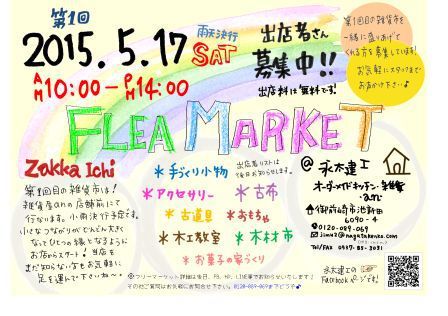 第1回
2015.5.17 SAT
雨天決行
AM10:00-PM14:00
出店者さん
募集中!!
出店料は無料です!
第1回目の雑貨市を
一緒に盛りあげて
くれる方を募集しています!
お気軽にスタッフまで
お声かけ下さい♪
FLEA MARKET
Zakka Ichi
第1回目の雑貨市は!
雑貨屋さんの店舗前にて
行ないます。小雨決行予定です。
小さなつながりがどんどん大きく
なってひとつの縁となるように
お店からスタート♪当店を
まだ知らない方もお気軽に
足を運んで下さいね〜♪
*手づくり小物
出店者リストは
後日お知らせします。
*アクセサリー
*古布
*古道具
*おもちゃ
*木工教室
*木材市
*お菓子の家づくり
@永太建工
オーダーメイドキッチン・雑貨
御前崎市池新田
6090-4
0120-089-069
Tel/FAX 0537-85-
永太建工の
Facebookページです!
※フリーマーケット詳細は後日、FB、HP、LINE等でお知らせいたします♪
その他ご質問はお気軽にお問合せ下さい。0120-089-069までどうぞ♪